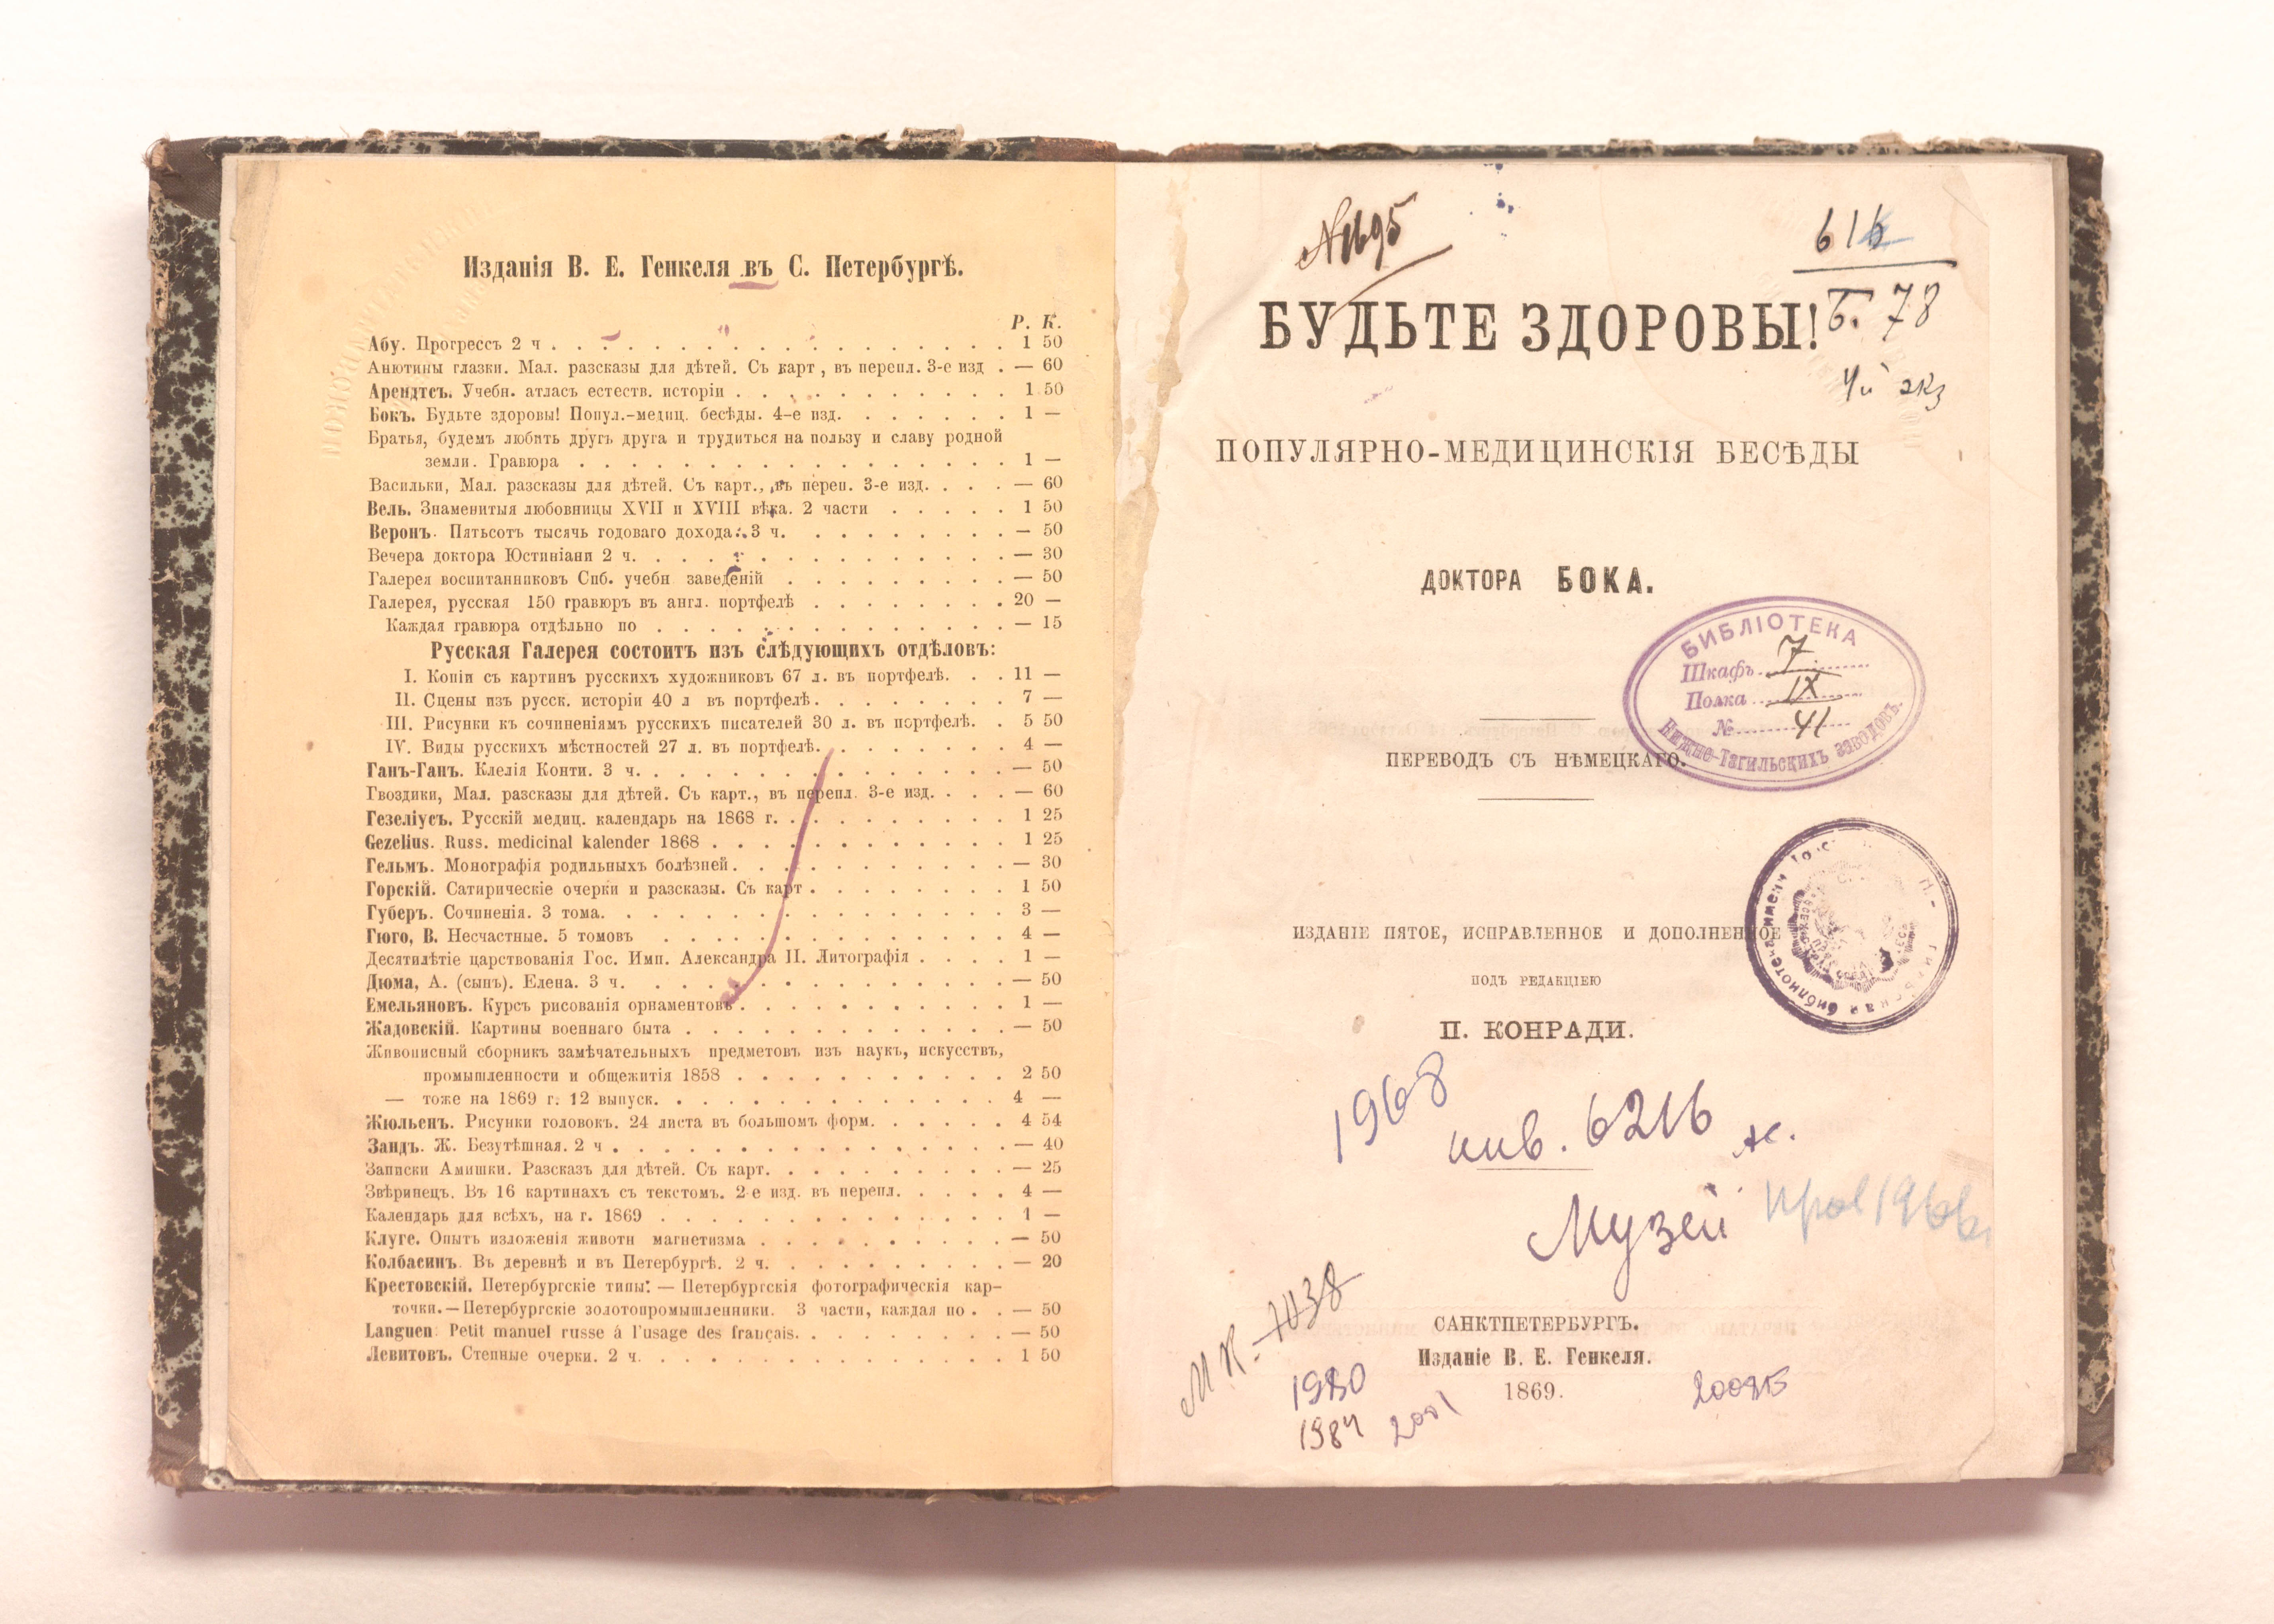 Изданія В. Е. Генкеля въ С. Петербургѣ.
Р. К.
Абу. Прогрессъ 2 ч . . . . . . . . . . . . . . . . . . 1 50
Анютины глазки. Мал. разсказы для дѣтей. Съ карт , въ перепл. 3-е изд . — 60
Арендтсъ. Учебн. атласъ естеств. исторіи . . . . . . . . . . . 1 50
Бокъ. Будьте здоровы! Попул.-медиц. бесѣды. 4-е изд. . . . . . . 1 —
Братья, будемъ любить другъ друга и трудиться на пользу и славу родной
земли. Гравюра . . . . . . . . . . . . . . . . . 1 —
Васильки, Мал. разсказы для дѣтей. Съ карт., въ переп. 3-е изд. . . . — 60
Вель. Знаменитыя любовницы XVII и XVIII вѣка. 2 части . . . . . 1 50
Веронъ. Пятьсотъ тысячь годоваго дохода. 3 ч. . . . . . . . . — 50
Вечера доктора Юстиніани 2 ч. . . . . . . . . . . . . . . — 30
Галерея воспитанниковъ Спб. учебн заведеній . . . . . . . . . — 50
Галерея, русская 150 гравюръ въ англ. портфелѣ . . . . . . . . 20 —
Каждая гравюра отдѣльно по . . . . . . . . . . . . . . — 15
Русская Галерея состоитъ изъ слѣдующихъ отдѣловъ:
I. Копіи съ картинъ русскихъ художниковъ 67 л. въ портфелѣ. . . 11 —
II. Сцены изъ русск. исторіи 40 л въ портфелѣ. . . . . . . . 7 —
III. Рисунки къ сочиненіямъ русскихъ писателей 30 л. въ портфелѣ. . 5 50
IV. Виды русскихъ мѣстностей 27 л. въ портфелѣ. . . . . . . . 4 —
Ганъ-Ганъ. Клелія Конти. 3 ч. . . . . . . . . . . . . . . — 50
Гвоздики, Мал. разсказы для дѣтей. Съ карт., въ перепл. 3-е изд. . . . — 60
Гезеліусъ. Русскій медиц. календарь на 1868 г. . . . . . . . . . 1 25
Gezelius. Russ. medicinal kalender 1868 . . . . . . . . . . . . 1 25
Гельмъ. Монографія родильныхъ болѣзней. . . . . . . . . . . — 30
Горскій. Сатирическіе очерки и разсказы. Съ карт . . . . . . . . 1 50
Губеръ. Сочиненія. 3 тома. . . . . . . . . . . . . . . . . 3 —
Гюго, В. Несчастные. 5 томовъ . . . . . . . . . . . . . . 4 —
Десятилѣтіе царствованія Гос. Имп. Александра II. Литографія . . . . 1 —
Дюма, А. (сынъ). Елена. 3 ч. . . . . . . . . . . . . . . . — 50
Емельяновъ. Курсъ рисованія орнаментовъ . . . . . . . . . . . 1 —
Жадовскій. Картины военнаго быта . . . . . . . . . . . . . — 50
Живописный сборникъ замѣчательныхъ предметовъ изъ наукъ, искусствъ,
промышленности и общежитія 1858 . . . . . . . . . . . 2 50
— тоже на 1869 г. 12 выпуск. . . . . . . . . . . . . . . 4 —
Жюльенъ. Рисунки головокъ. 24 листа въ большомъ форм. . . . . . 4 54
Зандъ. Ж. Безутѣшная. 2 ч . . . . . . . . . . . . . . . . — 40
Записки Амишки. Разсказъ для дѣтей. Съ карт. . . . . . . . . . — 25
Звѣринецъ. Въ 16 картинахъ съ текстомъ. 2 е изд. въ перепл. . . . . 4 —
Календарь для всѣхъ, на г. 1869 . . . . . . . . . . . . . . 1 —
Клуге. Опытъ изложенія животн магнетизма . . . . . . . . . . — 50
Колбасинъ. Въ деревнѣ и въ Петербургѣ. 2 ч. . . . . . . . . . — 20
Крестовскій. Петербургскіе типы: — Петербургскія фотографическія кар-
точки. — Петербургскіе золотопромышленники. 3 части, каждая по . . — 50
Languen Petit manuel russe á l'usage des français. . . . . . . . . — 50
Левитовъ. Степные очерки. 2 ч. . . . . . . . . . . . . . . 1 50
№1695
616
Б. 78
4й экз
БУДЬТЕ ЗДОРОВЫ!
ПОПУЛЯРНО-МЕДИЦИНСКІЯ БЕСѢДЫ
ДОКТОРА БОКА.
БИБЛІОТЕКА
Шкафъ 7
Полка IX
№ 41
Нижне-Тагильскихъ заводовъ.
ПЕРЕВОДЪ СЪ НѢМЕЦКАГО.
ИЗДАНІЕ ПЯТОЕ, ИСПРАВЛЕННОЕ И ДОПОЛНЕННОЕ
ПОДЪ РЕДАКЦІЕЮ
П. КОНРАДИ.
1968
инв. 6216
Музей
МК-7038
САНКТПЕТЕРБУРГЪ.
Изданіе В. Е. Генкеля.
1869.
1980
1984
2001